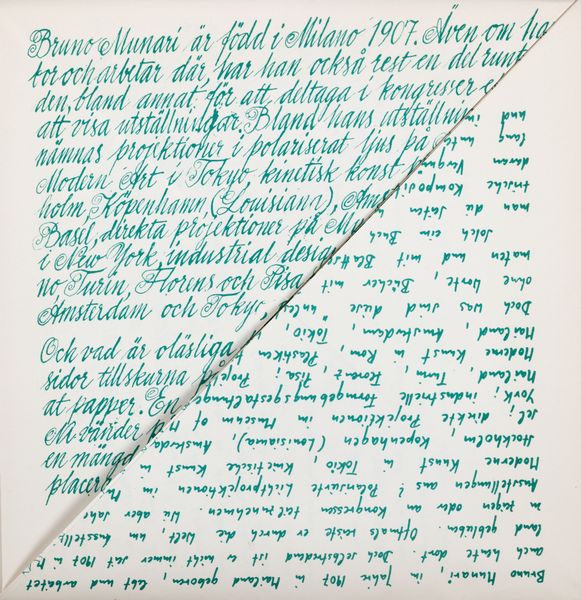 Bruno Munari är född i Milano 1907. Även om ha
bor och arbetar där, har han också rest en del runt
den, bland annat för att deltaga i kongresser e
att visa utställningar. Bland hans utställnin
nämnas projektioner i polariserat ljus på
Modern Art i Tokyo, kinetisk konst
holm, Köpenhamn (Louisiana), Ams
Basel, direkta projektioner på Mu
i New York, industrial design
no Turin, Florens och Pisa
Amsterdam och Tokyo,
Och vad är oläsliga
sidor tillskurna på
at papper. En
Mi vänder p
en mängd
placera
Bruno Munari, im Jahre 1907 in Mailand geboren, lebt und arbeitet
auch heute dort. Doch selbstredend ist er nicht immer seit 1907 in M
land geblieben. Oftmals reiste er durch die Welt, um Ausstellu
zu zeigen oder an Kongressen teilzunehmen. Wie aber sahe
Ausstellungen aus? Polarisierte Lichtprojektionen im M
Moderne Kunst in Tokio, Kinetische Kunst in
Stockholm, Kopenhagen (Louisiana), Amsterda
sel; direkte Projektionen im Museum of M
York; industrielle Formgebungsgestaltunge
Mailand, Turin, Florenz, Pisa; Projek
Moderne Kunst in Rom, Plastiken
Mailand, Amsterdam, Tokio,
Doch was sind diese „unles
ohne Worte, Bücher mit
matten und mit Blattse
Solch ein Buch
man die Seiten u
Komposi
deren Vergnüg
lang unte
und in